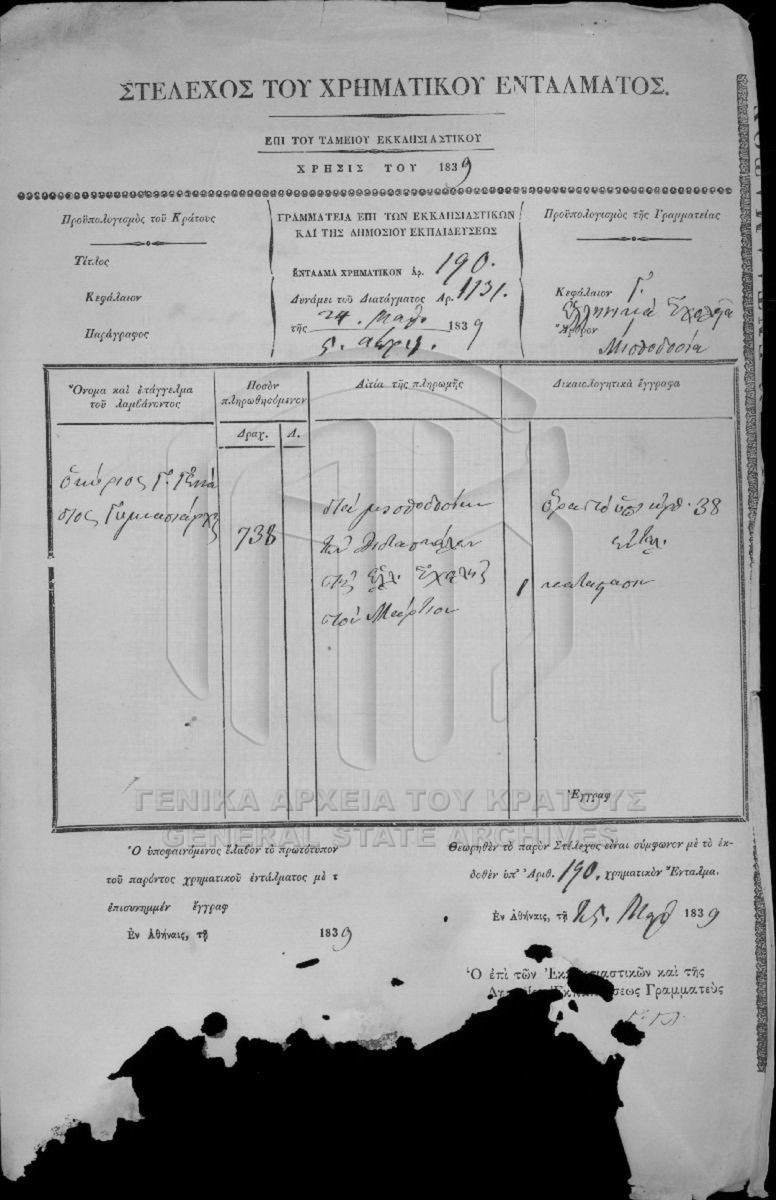 ΣΤΕΛΕΧΟΣ ΤΟΥ ΧΡΗΜΑΤΙΚΟΥ ΕΝΤΑΛΜΑΤΟΣ.
ΕΠΙ ΤΟΥ ΤΑΜΕΙΟΥ ΕΚΚΛΗΣΙΑΣΤΙΚΟΥ
ΧΡΗΣΙΣ ΤΟΥ 1839
Προϋπολογισμὸς τοῦ Κράτους
Τίτλος
Κεφάλαιον
Παράγραφος
ΓΡΑΜΜΑΤΕΙΑ ΕΠΙ ΤΩΝ ΕΚΚΛΗΣΙΑΣΤΙΚΩΝ
ΚΑΙ ΤΗΣ ΔΗΜΟΣΙΟΥ ΕΚΠΑΙΔΕΥΣΕΩΣ
ΕΝΤΑΛΜΑ ΧΡΗΜΑΤΙΚΟΝ Ἀρ. 190.
Δυνάμει τοῦ Διατάγματος Ἀρ. 1131.
τῆς 24. Μαρτ 1839
5. Απριλ.
Προϋπολογισμὸς τῆς Γραμματείας
Κεφάλαιον Γ'
Ἑλληνικὰ Σχολεῖα
Ἄρθρον
Μισθοδοσία
Ὄνομα καὶ ἐπάγγελμα
τοῦ λαμβάνοντος
Ποσὸν
πληρωθησόμενον
Δραχ. Λ.
Αἰτία τῆς πληρωμῆς
Δικαιολογητικὰ ἔγγραφα
ὁ κύριος Γ. Γεννά
διος Γυμνασιάρχης
738
διὰ μισθοδοσίαν
τῶν διδασκάλων
τοῦ Ἑλ. Σχολείου
τὸν Μάρτιον
ὑπ' ἀριθ. 38
1 κατάστασιν
Ἐγγραφ
ΓΕΝΙΚΑ ΑΡΧΕΙΑ ΤΟΥ ΚΡΑΤΟΥΣ
GENERAL STATE ARCHIVES
Ὁ ὑποφαινόμενος ἔλαβον τὸ πρωτότυπον
τοῦ παρόντος χρηματικοῦ ἐντάλματος μὲ τ
ἐπισυνημμέν ἔγγραφ
Ἐν Ἀθήναις, τῇ 1839
Θεωρηθὲν τὸ παρὸν Στέλεχος εἶναι σύμφωνον μὲ τὸ ἐκ-
δοθὲν ὑπ' Ἀριθ. 190. χρηματικὸν Ἔνταλμα.
Ἐν Ἀθήναις, τῇ 25. Μαρτ 1839
Ὁ ἐπὶ τῶν Ἐκκλησιαστικῶν καὶ τῆς
Γραμματεὺς